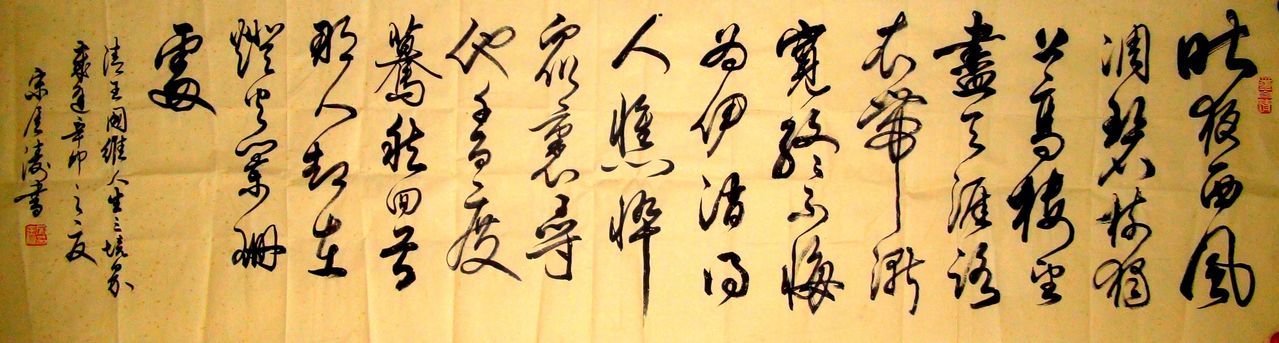 昨夜西風
凋碧树独
上高楼望
盡天涯路
衣帶漸
寬終不悔
為伊消得
人憔悴
眾裏尋
他千百度
驀然回首
那人却在
燈火闌珊
處
清王國維人生三境界
辛卯之夏
宋 書